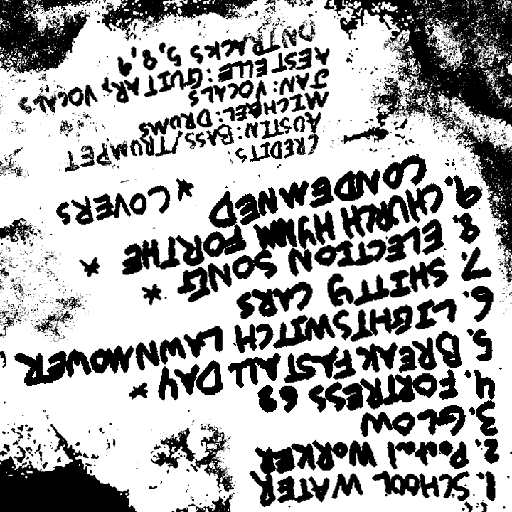 1. SCHOOL WATER
2. Postal WORKER
3. GLOW
4. FORTRESS 63
5. BREAKFAST ALL DAY *
6. LIGHTSWITCH LAWNMOWER
7. SHITTY CARS
8. ELECTION SONG *
9. CHURCH HYMN FOR THE *
CONDEMNED
* COVERS
CREDITS
AUSTIN: BASS/TRUMPET
MICHAEL: DRUMS
JAN: VOCALS
AESTELLE: GUITAR, VOCALS
ON TRACKS 5, 8, 9